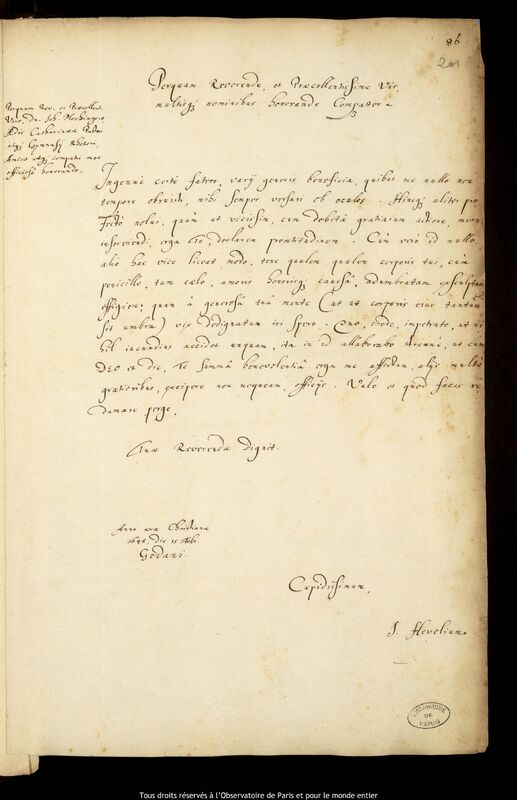 86
201
Perquam Reverende, et Præcellentissime Vir,
multisq; nominibus honorande Compater.
Perquam Rev. et Præcellent.
Viro, Dn. Joh. Mochingero
Ædis Catharinianæ Pastori
atq; Gymnasij Rhetori,
Amico atq; compatri meo
officiosè honorando.
Ingenuè certè fateor, varij generis beneficia, quibus me nullo non
tempore obruisti, mihi semper versari ob oculos. Hincq; aliter pro
fectò nolui, quàm ut vicissim, cum debitâ gratiarum actione, meam
inserviendi erga Te declarem promtitudinem. Cùm verò id nullo
alio hac vice liceat modo, tene qualem qualem corporis tui, cùm
penicillo, tum cælo, amoris honorisq; caussâ, adumbratam exsculptam
effigiem; quam à generosâ tuâ mente (ut ut corporis ejus tantùm
sit umbra) vix dedignatum iri spero. Quo, crede, impetrato, ut ni
hil jucundius accidet unquam, ita in id allaborabo strenuè, ut cum
DEO et die, Te summâ benevolentiâ erga me affectum, alijs multò
gratioribus, excipere non nequeam, officijs. Vale et quod facis re
damare perge.
Tuæ Reverendæ Dignit.
Anno æræ Christianæ
1648, die 15 Feb.
Gedani.
Cupidissimum,
J. Hevelium.
OBSERVATOIRE
DE
PARIS
Tous droits réservés à l'Observatoire de Paris et pour le monde entier